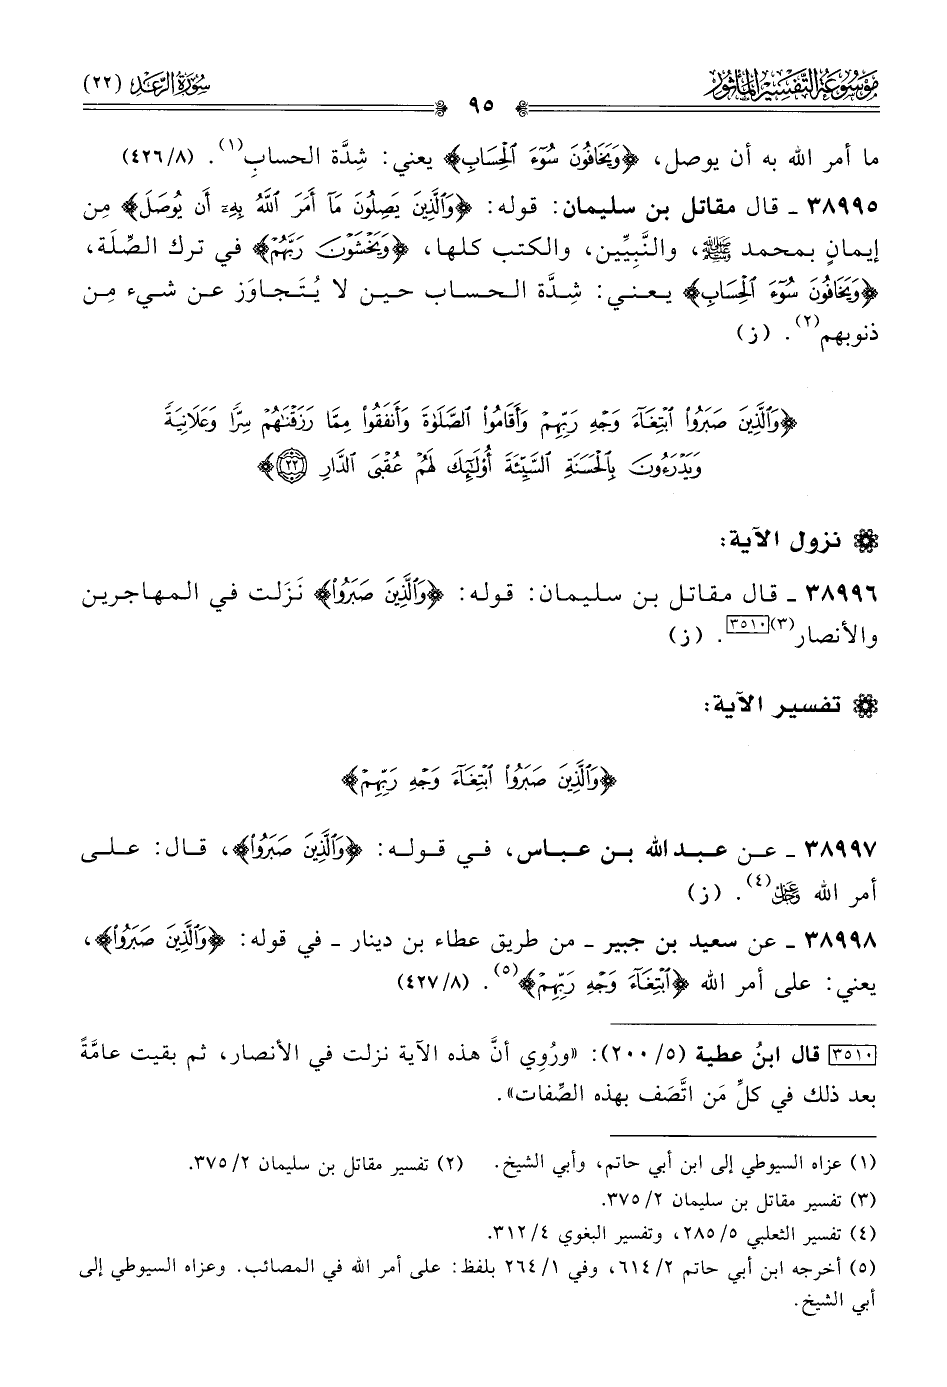 مَوْسُوعَةُ التَّفْسِيرِ المَأْثُورِ
٩٥
سُورَةُ الرَّعْدِ (٢٢)
ما أمر الله به أن يوصل، ﴿وَيَخَافُونَ سُوٓءَ ٱلْحِسَابِ﴾ يعني: شِدَّة الحسابِ(١). (٤٢٦/٨)
٣٨٩٩٥ ـ قال مقاتل بن سليمان: قوله: ﴿وَٱلَّذِينَ يَصِلُونَ مَآ أَمَرَ ٱللَّهُ بِهِۦٓ أَن يُوصَلَ﴾ مِن
إيمانٍ بمحمد ﷺ، والنَّبِيِّين، والكتب كلها، ﴿وَيَخْشَوْنَ رَبَّهُمْ﴾ في ترك الصِّلَة،
﴿وَيَخَافُونَ سُوٓءَ ٱلْحِسَابِ﴾ يعني: شِدَّة الحساب حين لا يُتَجاوَز عن شيء مِن
ذنوبهم(٢). (ز)
﴿وَٱلَّذِينَ صَبَرُوا۟ ٱبْتِغَآءَ وَجْهِ رَبِّهِمْ وَأَقَامُوا۟ ٱلصَّلَوٰةَ وَأَنفَقُوا۟ مِمَّا رَزَقْنَٰهُمْ سِرًّا وَعَلَانِيَةً
وَيَدْرَءُونَ بِٱلْحَسَنَةِ ٱلسَّيِّئَةَ أُو۟لَٰٓئِكَ لَهُمْ عُقْبَى ٱلدَّارِ ٢٢﴾
نزول الآية:
٣٨٩٩٦ ـ قال مقاتل بن سليمان: قوله: ﴿وَٱلَّذِينَ صَبَرُوا۟﴾ نَزَلت في المهاجرين
والأنصار(٣)[٣٥١٠]. (ز)
تفسير الآية:
﴿وَٱلَّذِينَ صَبَرُوا۟ ٱبْتِغَآءَ وَجْهِ رَبِّهِمْ﴾
٣٨٩٩٧ ـ عن عبد الله بن عباس، في قوله: ﴿وَٱلَّذِينَ صَبَرُوا۟﴾، قال: على
أمر الله عزّ وجلّ(٤). (ز)
٣٨٩٩٨ ـ عن سعيد بن جبير ـ من طريق عطاء بن دينار ـ في قوله: ﴿وَٱلَّذِينَ صَبَرُوا۟﴾،
يعني: على أمر الله ﴿ٱبْتِغَآءَ وَجْهِ رَبِّهِمْ﴾(٥). (٤٢٧/٨)
[٣٥١٠] قال ابنُ عطية (٢٠٠/٥): «ورُوِي أنَّ هذه الآية نزلت في الأنصار، ثم بقيت عامَّةً
بعد ذلك في كلِّ مَن اتَّصَف بهذه الصِّفات».
(١) عزاه السيوطي إلى ابن أبي حاتم، وأبي الشيخ. (٢) تفسير مقاتل بن سليمان ٣٧٥/٢.
(٣) تفسير مقاتل بن سليمان ٣٧٥/٢.
(٤) تفسير الثعلبي ٢٨٥/٥، وتفسير البغوي ٣١٢/٤.
(٥) أخرجه ابن أبي حاتم ٦١٤/٢، وفي ٢٦٤/١ بلفظ: على أمر الله في المصائب. وعزاه السيوطي إلى
أبي الشيخ.